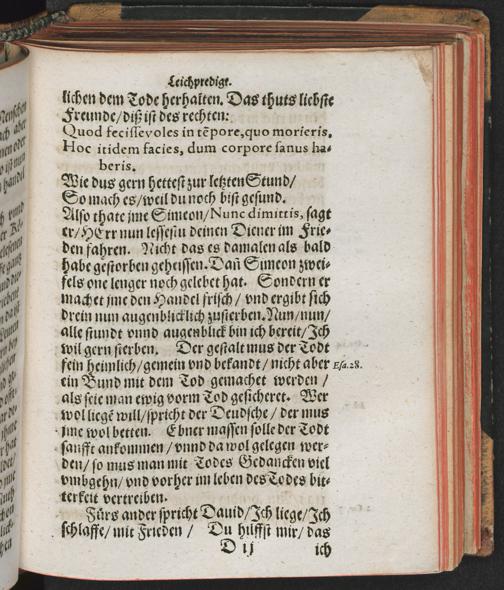 Leichpredigt.
lichen dem Tode herhalten. Das thuts liebste
Freunde/diß ist des rechten:
Quod fecisse voles in tẽpore, quo morieris.
Hoc itidem facies, dum corpore sanus ha-
beris.
Wie dus gern hettest zur letzten Stund/
So mach es/weil du noch bist gesund.
Also thate jme Simeon/Nunc dimittis, sagt
er/HErr nun lessestu deinen Diener im Frie-
den fahren. Nicht das es damalen als bald
habe gestorben geheissen. Dañ Simeon zwei-
fels one lenger noch gelebet hat. Sondern er
machet jme den Handel frisch / vnd ergibt sich
drein nun augenblicklich zusterben. Nun/nun/
alle stundt vnnd augenblick bin ich bereit/Ich
wil gern sterben. Der gestalt mus der Todt
fein heimlich/gemein vnd bekandt / nicht aber Esa. 28.
ein Bund mit dem Tod gemachet werden /
als seie man ewig vorm Tod gesicheret. Wer
wol ligẽ will/spricht der Deudsche / der mus
jme wol betten. Ebner massen solle der Todt
sanfft ankommen / vnnd da wol gelegen wer-
den / so mus man mit Todes Gedancken viel
vmbgehn/ vnd vorher im leben des Todes bit-
terkeit vertreiben.
Fürs ander spricht Dauid/Ich liege/Ich
schlaffe/ mit Frieden / Du hilffst mir/ das
D ij ich